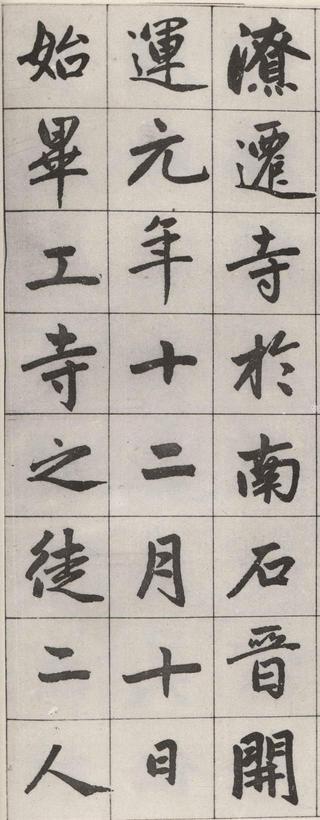 潦遷寺於南石晉開
運元年十二月十日
始畢工寺之徒二人